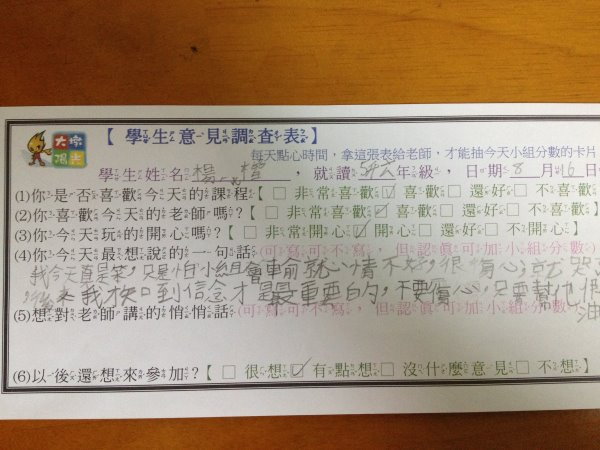 大宗
陽光
【學生意見調查表】
每天點心時間，拿這張表給老師，才能抽今天小組分數的卡片
學生姓名 楊 橙，就讀 升六年級，日期：8月16日
(1)你是否喜歡今天的課程【□非常喜歡☑喜歡□還好□不喜歡
(2)你喜歡今天的老師嗎?【□非常喜歡☑喜歡□還好□不喜歡
(3)你今天玩的開心嗎?【□非常開心☑開心□還好□不開心
(4)你今天最想說的一句話(可寫可不寫，但認真可加小組分數)
我今天真是笨，只是怕小組會輸就心情不好，很傷心，就哭
後來我找回到信念才是最重要的，不要傷心，只要幫他
油
(5)想對老師講的悄悄話(可寫可不寫，但認真可加小組分數)
(6)以後還想來參加?【□很想☑有點想□沒什麼意見□不想】